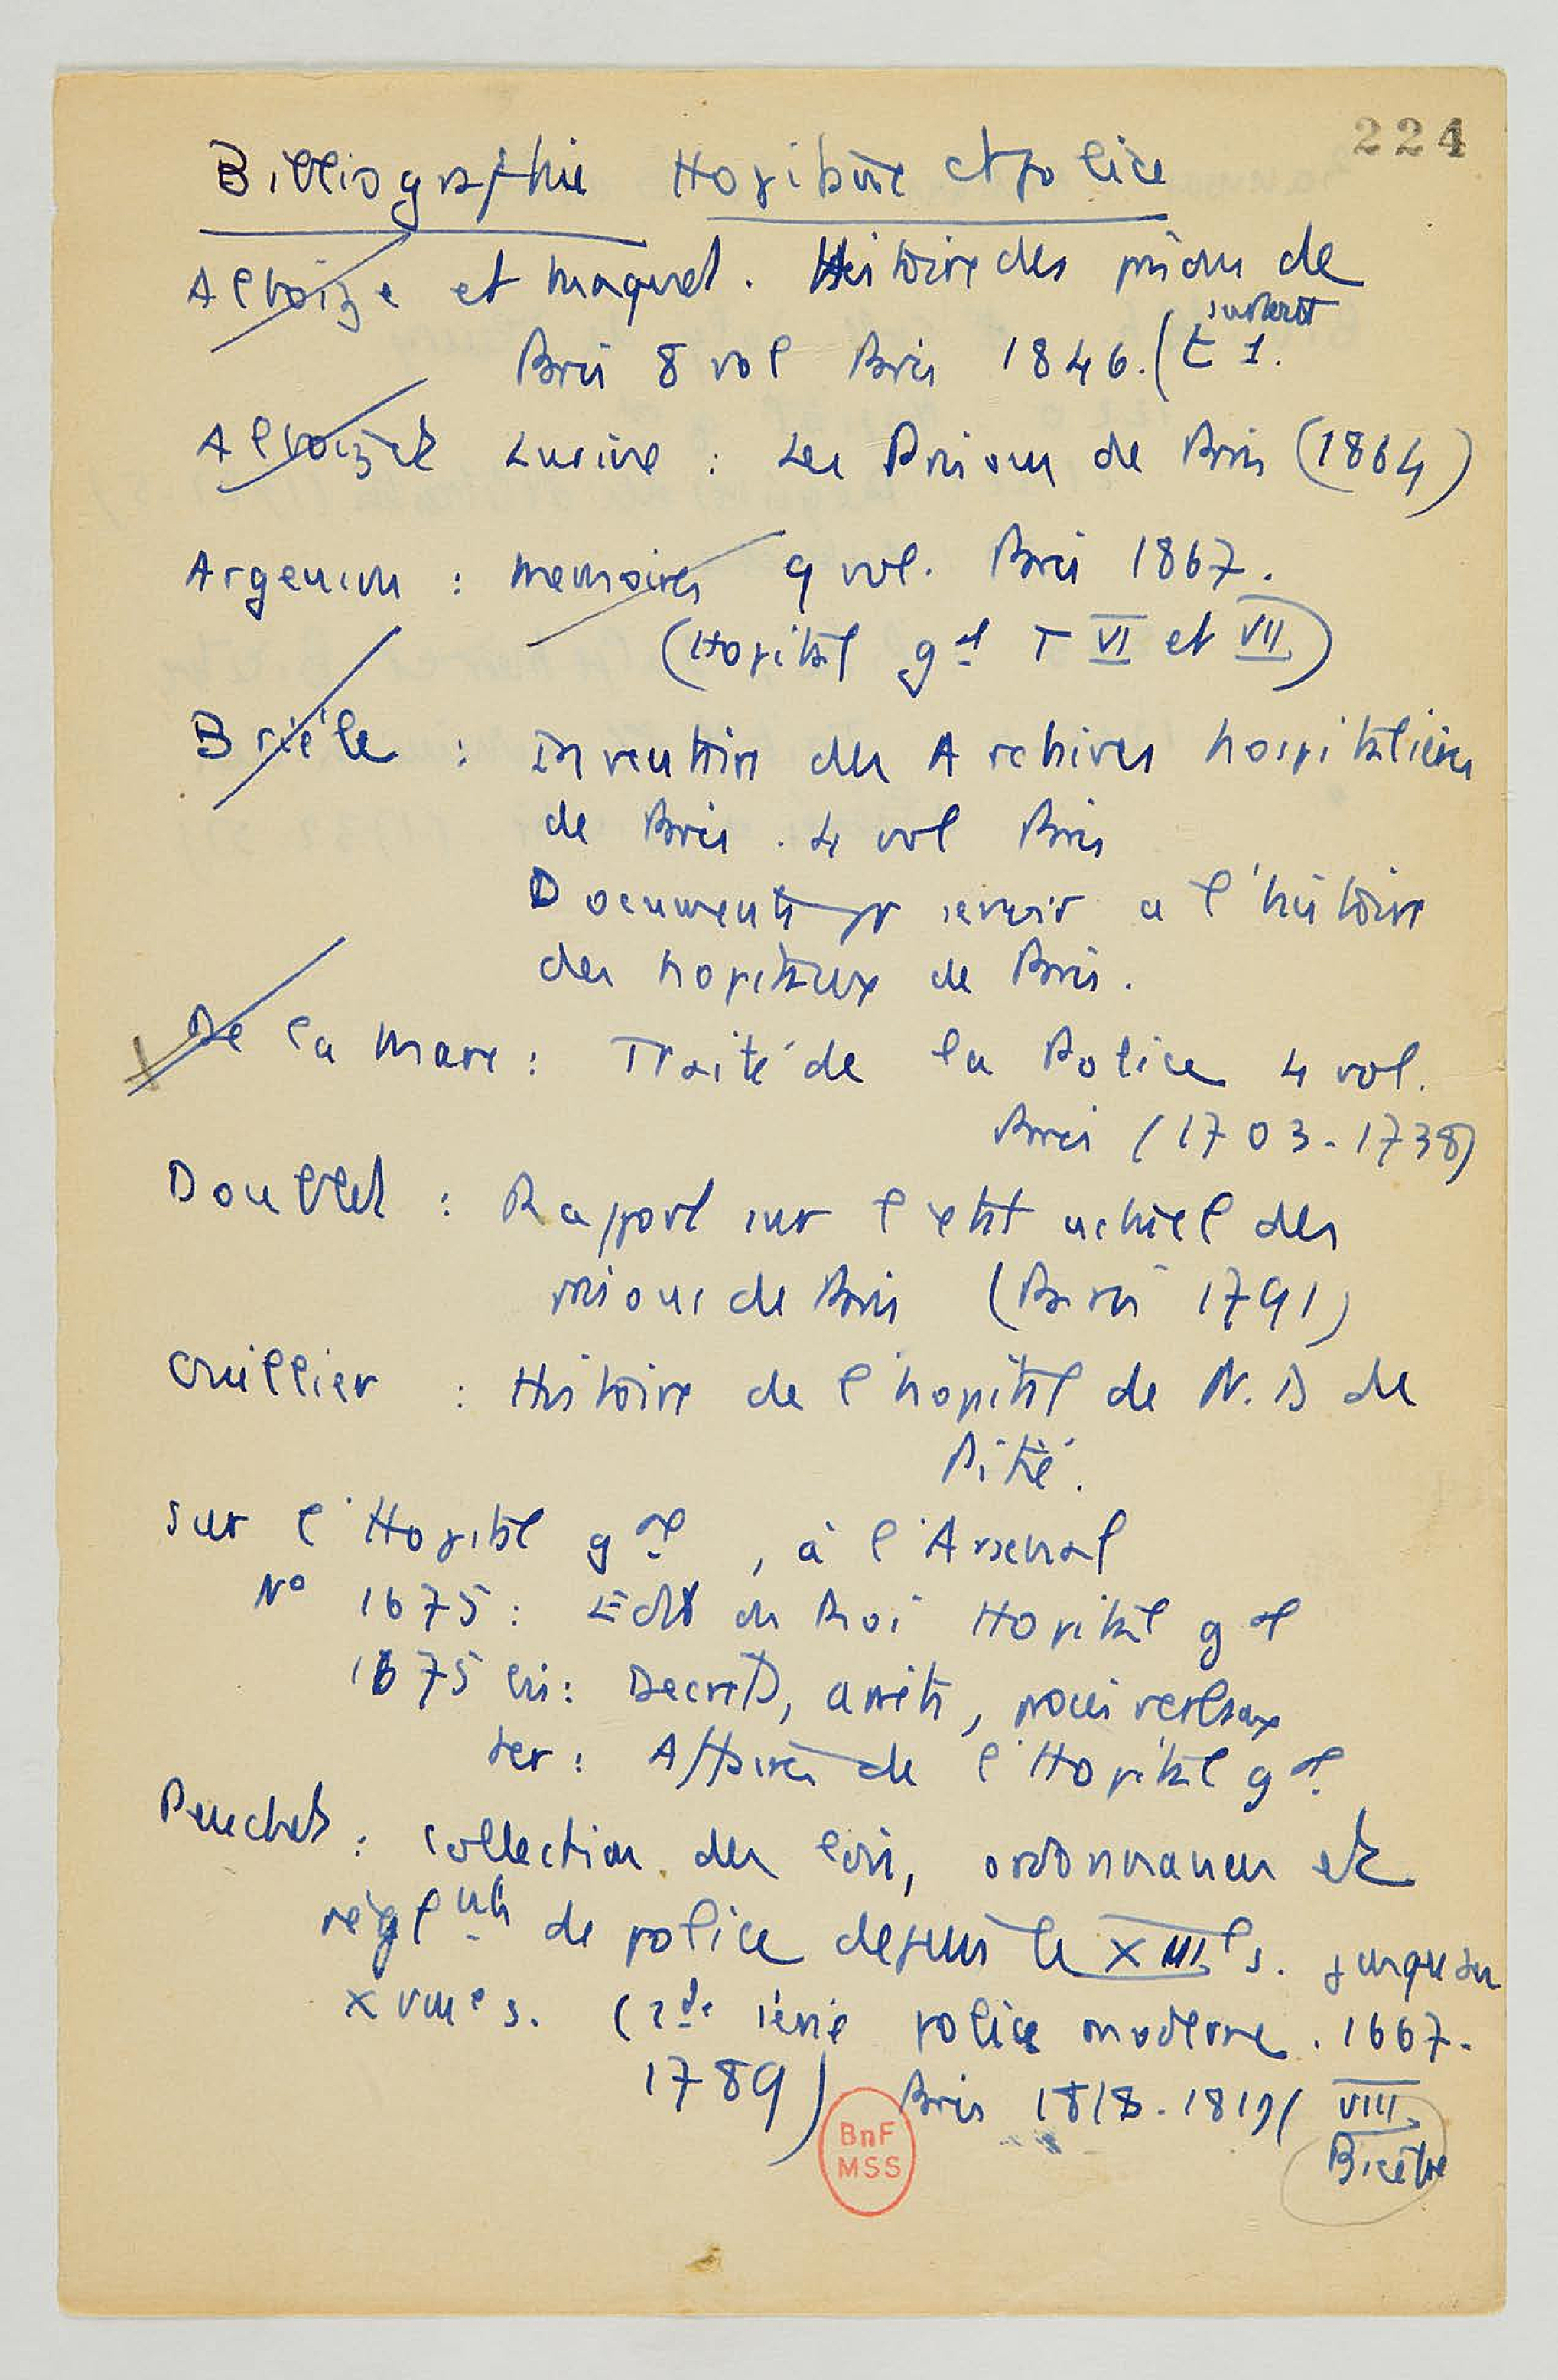 224
Bibliographie Hopitaux et police
Alboize et Maquet. Histoire des prisons de
Paris 8 vol Paris 1846. (t 1.
surtout
Alboize et Lurine : Les Prisons de Paris (1864)
Argenson : Memoires 9 vol. Paris 1867.
(Hopital gal T VI et VII)
Brièle : Inventaire des Archives hospitalières
de Paris. 4 vol Paris
Documents pr servir a l'histoire
des hopitaux de Paris.
De la Mare : Traité de la Police 4 vol.
Paris (1703-1738)
Doublet : Rapport sur l'etat actuel des
prisons de Paris (Paris 1791)
Cruillier : Histoire de l'hopital de N. D de
Pitié.
Sur l'Hopital gal, à l'Arsenal
No 1675 : Edit du Roi Hopital gal
1675 bis : Decrets, arrêts, procès verbaux
ter : Affaires de l'Hopital gal
Peuchet : Collection des lois, ordonnances et
règlmts de police depuis le XIIIe s. jusqu'au
XVIIIe s. (2de série police moderne. 1667-
1789) Paris 1818-1819 ( VIII
Bicêtre
BnF
MSS